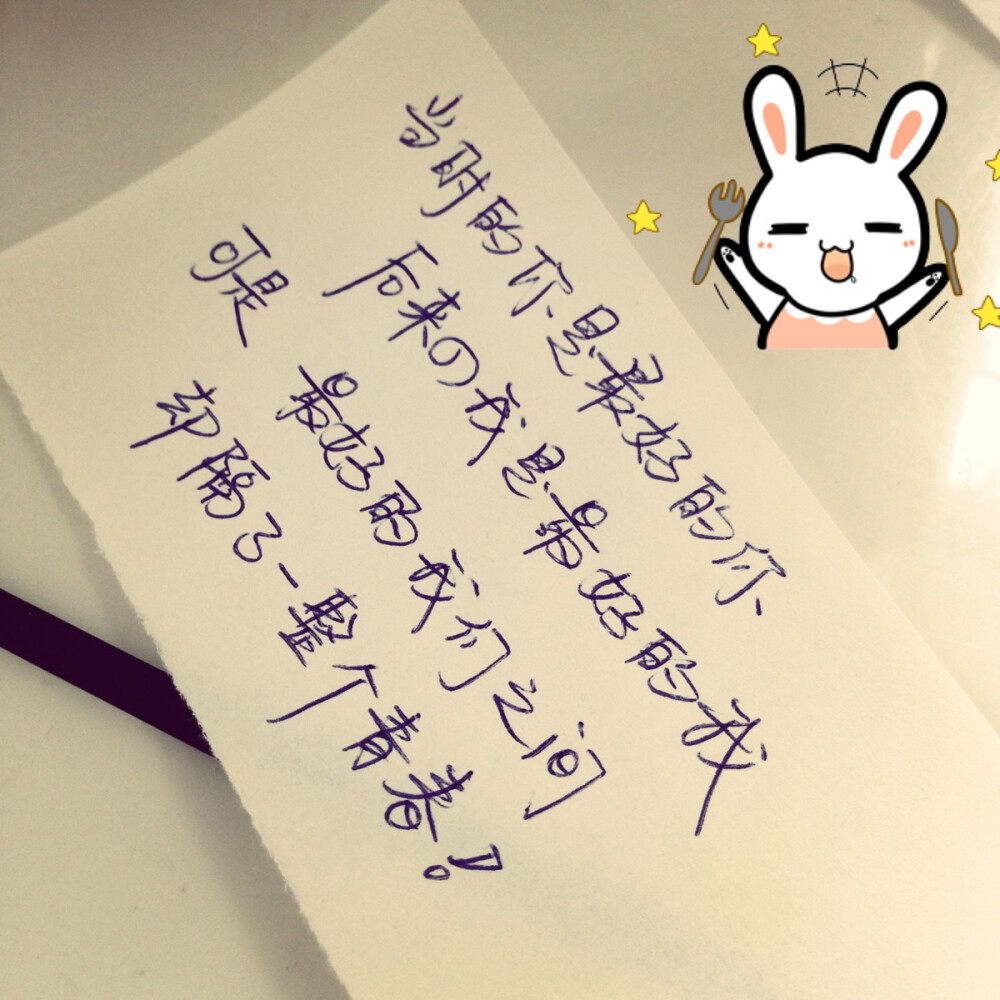 当时的你是最好的你、
后来的我是最好的我
可是 最好的我们之间
却隔了一整个青春！